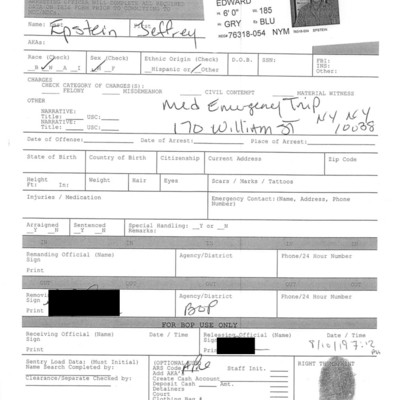 EDWARD
6' 0" 185
GRY BLU
76318-054 NYM
Name: Last First
Epstein Jeffrey
AKAs:
Race (Check) Sex (Check) Ethnic Origin (Check) D.O.B. SSN: FBI:
INS:
Hispanic or Other Other:
CHARGES
CHECK CATEGORY OF CHARGES(S):
FELONY MISDEMEANOR CIVIL CONTEMPT MATERIAL WITNESS
OTHER
Med Emergency Trip
NARRATIVE:
Title: USC:
NARRATIVE:
Title: USC:
170 William St NY NY
10038
Date of Offense: Date of Arrest: Place of Arrest:
State of Birth Country of Birth Citizenship Current Address Zip Code
Height Weight Hair Eyes Scars / Marks / Tattoos
Ft: In:
Injuries / Medication Emergency Contact: (Name, Address, Phone
Number)
Arraigned Sentenced Special Handling: Y or N
Y N Y N Remarks:
IN IN IN
Remanding Official (Name) Agency/District Phone/24 Hour Number
Sign
Print
OUT OUT OUT
Removing Agency/District Phone/24 Hour Number
Sign
Print BOP
FOR BOP USE ONLY
Receiving Official (Name) Date / Time Releasing Official (Name) Date / Time
Sign Sign
Print Print
Sentry Load Data: (Must Initial) (OPTIONAL) RIGHT
Name Search Completed by: ARS Code
Add AKA
Clearance/Separatee Checked by: Create Cash Account
Deposit Cash Amt.
Detainers
Court